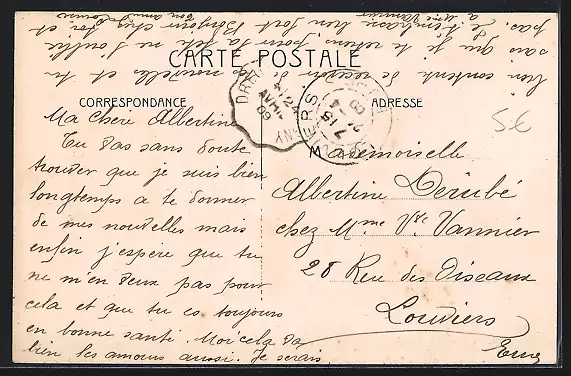 CARTE POSTALE
CORRESPONDANCE
ADRESSE
Ma chère Albertine
Tu vas sans doute
trouver que je suis bien
longtemps a te donner
de mes nouvelles mais
enfin j'espère que tu
ne m'en veux pas pour
cela et que tu es toujours
en bonne santé. Moi cela va
bien les amours aussi. Je serais
bien contente de recevoir de tes nouvelles et tu
sais que je te retiens pour la fête ne l'oublie
pas. Je t'embrasse bien fort Bonjour chez toi et
a Mme Vannier
Ton amie
Mademoiselle
Albertine Derubé
chez Mme Vve Vannier
28 Rue des Oiseaux
Louviers
Eure
5€